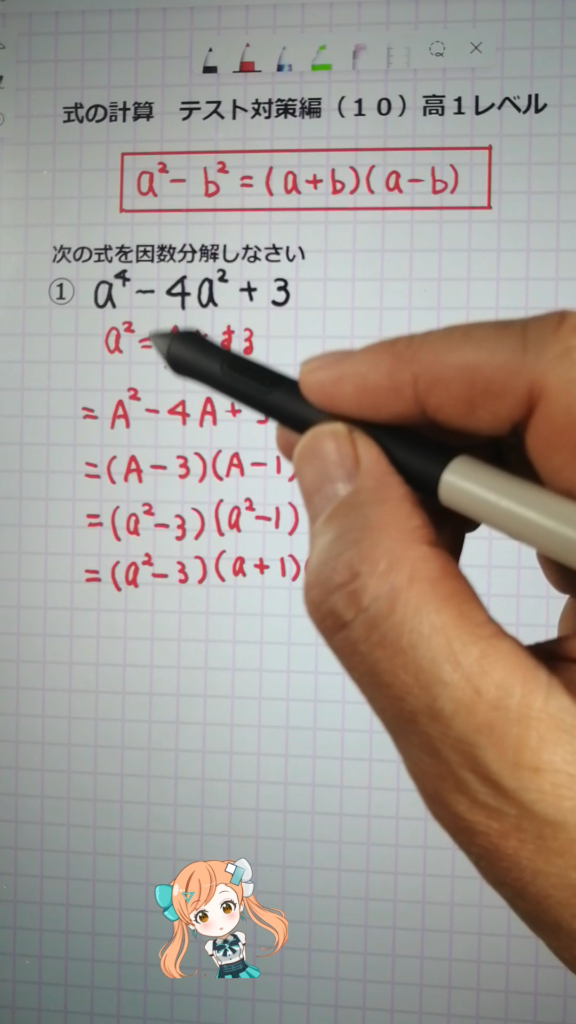 式の計算 テスト対策編（１０）高１レベル
a²- b² = (a+b)(a-b)
次の式を因数分解しなさい
① a⁴ - 4a² + 3
a² = する
= A² - 4A +
= (A - 3)(A - 1)
= (a² - 3)(a² - 1)
= (a² - 3)(a + 1)(